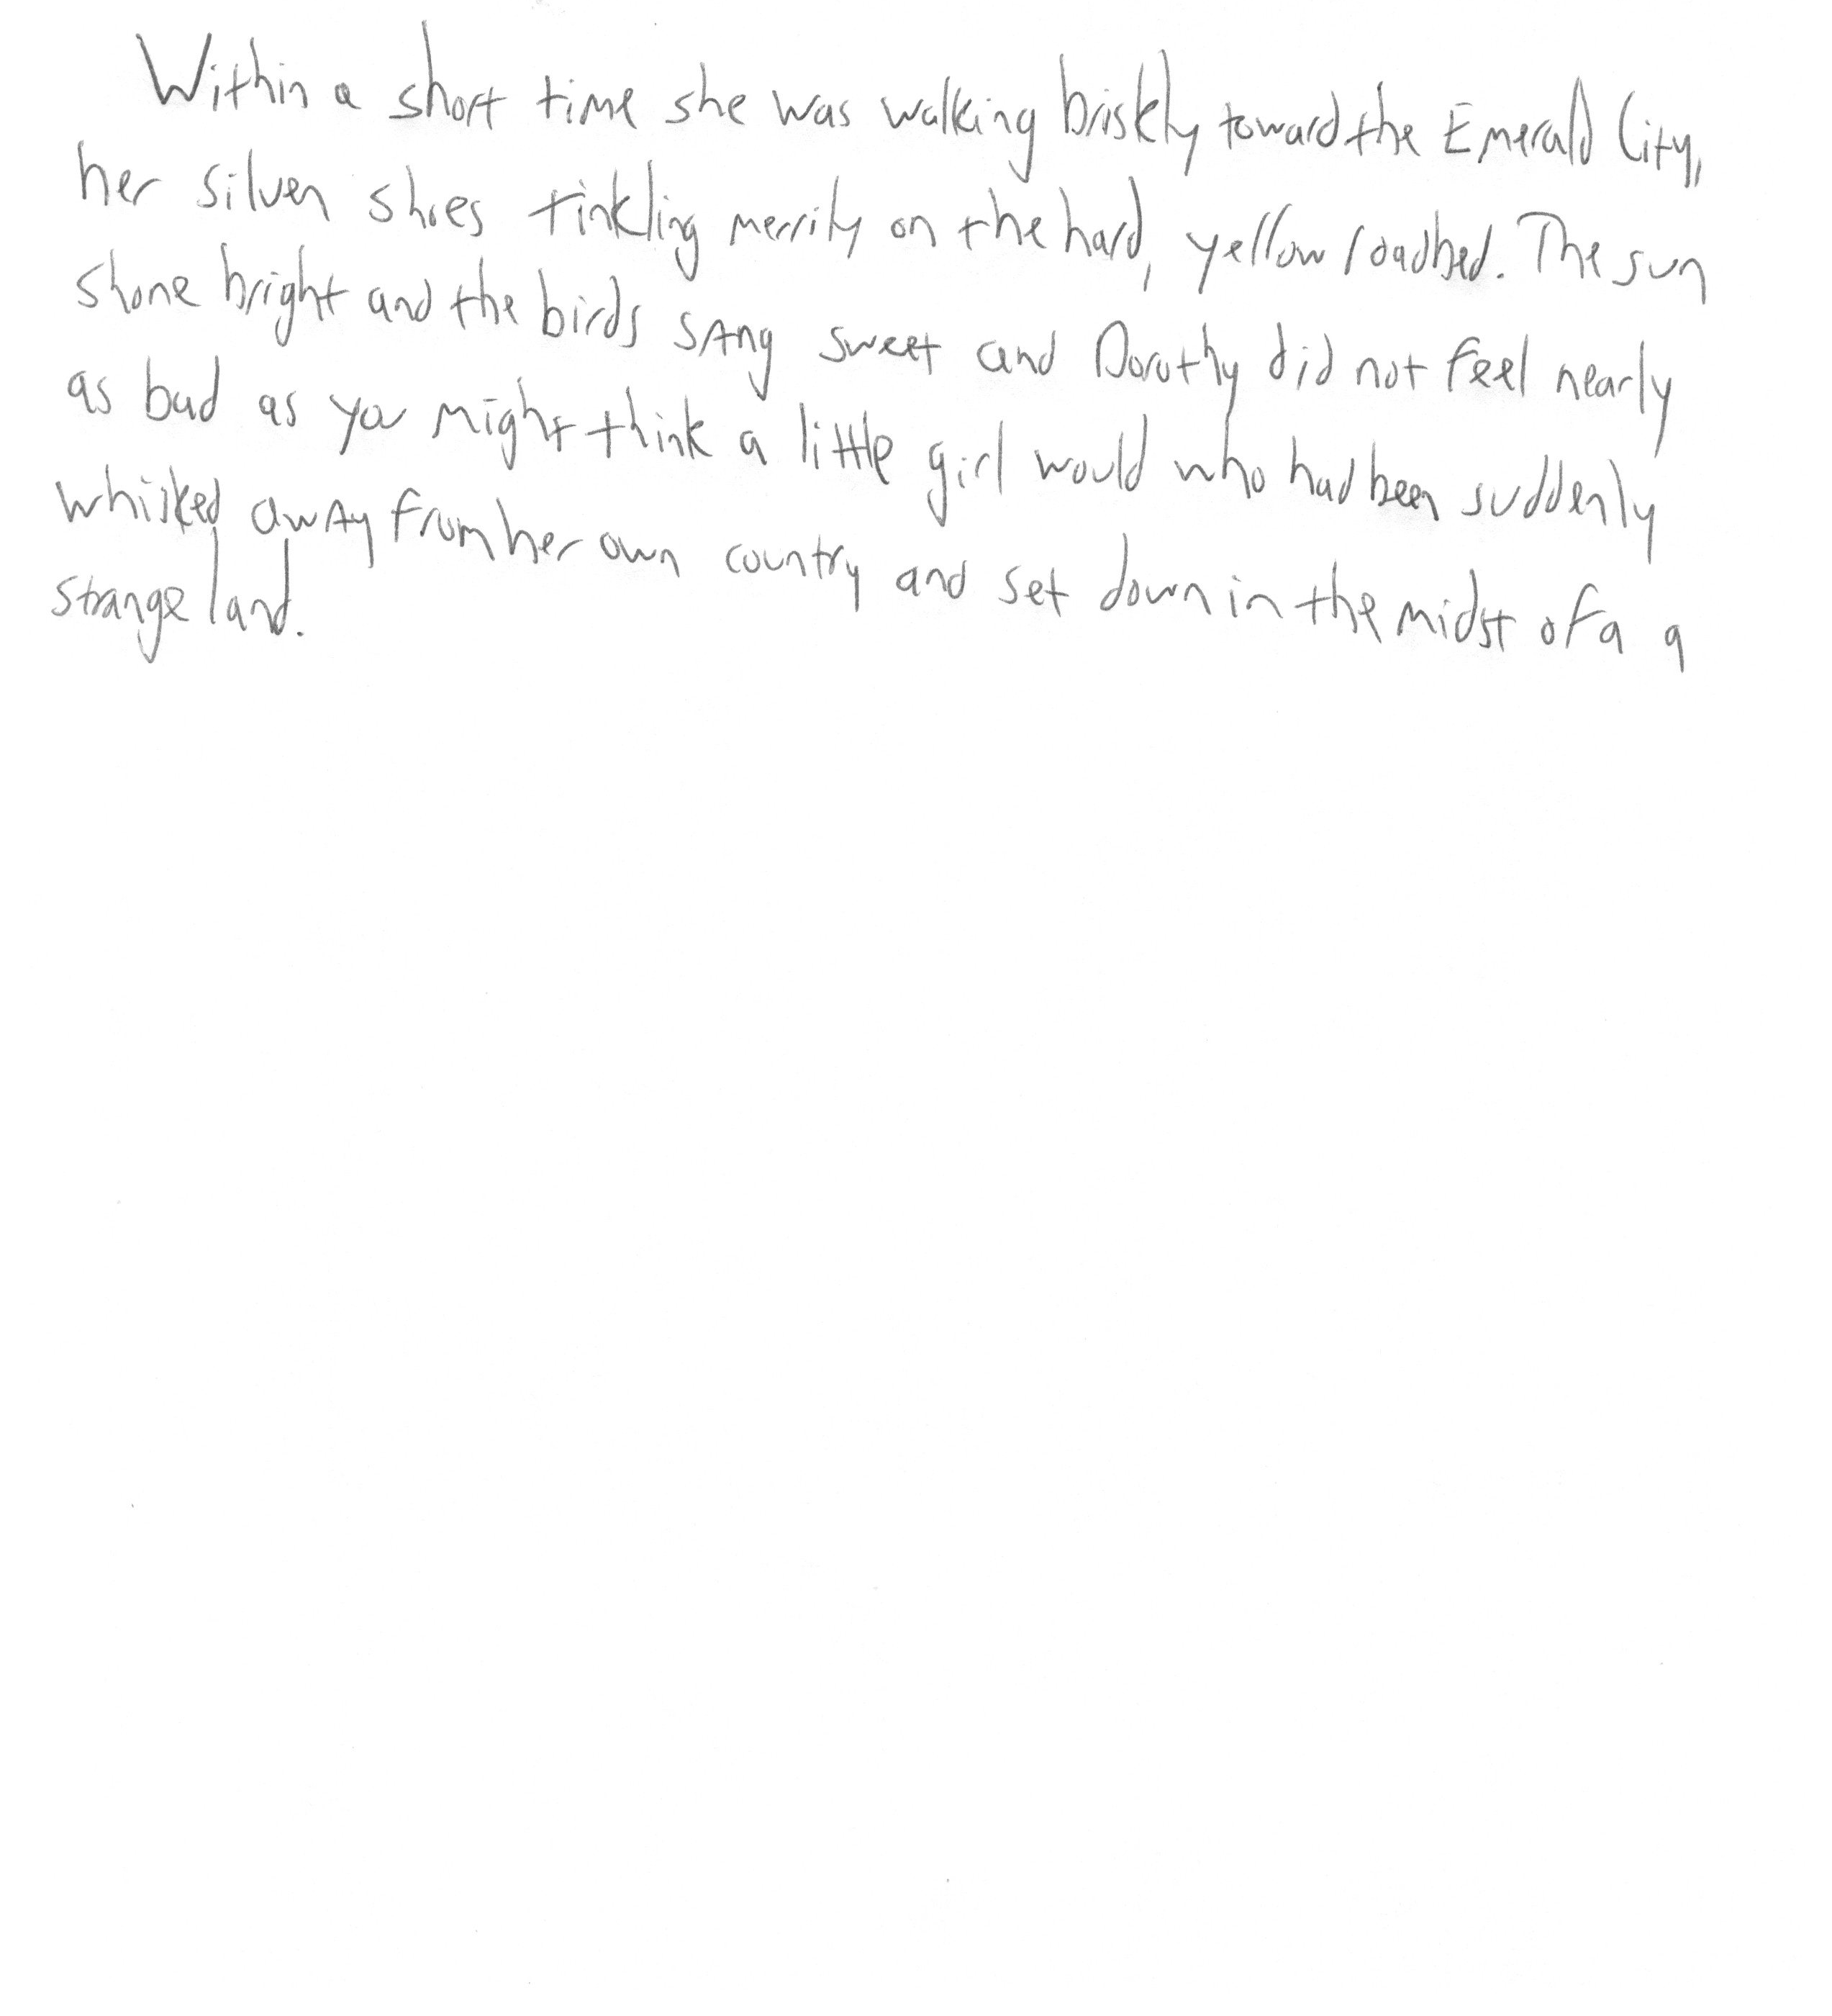 Within a short time she was walking briskly toward the Emerald City,
her silver shoes tinkling merrily on the hard, yellow roadbed. The sun
shone bright and the birds sang sweet and Dorothy did not feel nearly
as bad as you might think a little girl would who had been suddenly
whisked away from her own country and set down in the midst of a a
strange land.